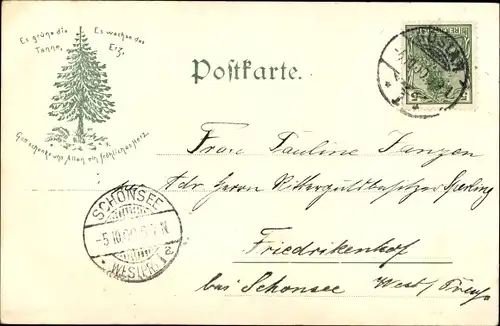 Es grüne die
Tanne,
Es wachse das
Erz,
Gott schenke uns Allen ein fröhliches Herz.
Postkarte.
Frau Pauline Janzen
Adr Herrn Rittergutsbesitzer Sperling
Friedrikenhof
bei Schönsee West/Preuß
SCHÖNSEE
-5.10.00
* WESTPR. *